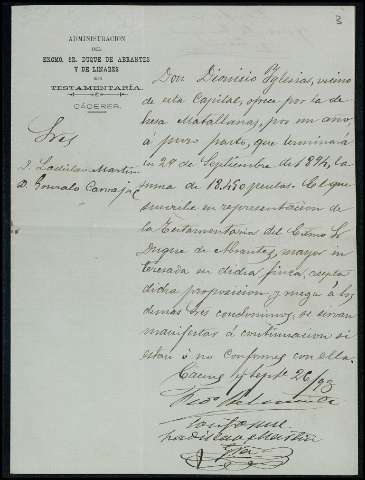 3
ADMINISTRACION
DEL
EXCMO. SR. DUQUE DE ABRANTES
Y DE LINARES
EN
TESTAMENTARÍA.
CÁCERES.
Sres
D. Ladislao Martin
D. Gonzalo Carvajal
Don Dionicio Yglesias, vecino
de esta Capital, ofrece por la de
hesa Matallanas, por un año,
á puro pasto, que terminará
en 29 de Septiembre de 1894, la
suma de 18.450 pesetas. El que
suscribe en representacion de
la Testamentaria del Exmo Sr
Duque de Abrantes, mayor in
teresada en dicha finca, acepta
dicha proposicion y ruega á los
demás tres condominos, se sirvan
manifestar á continuacion si
están ó no conformes con ella.
Caceres y Septe 26/93
Conforme
Ladislao Martin